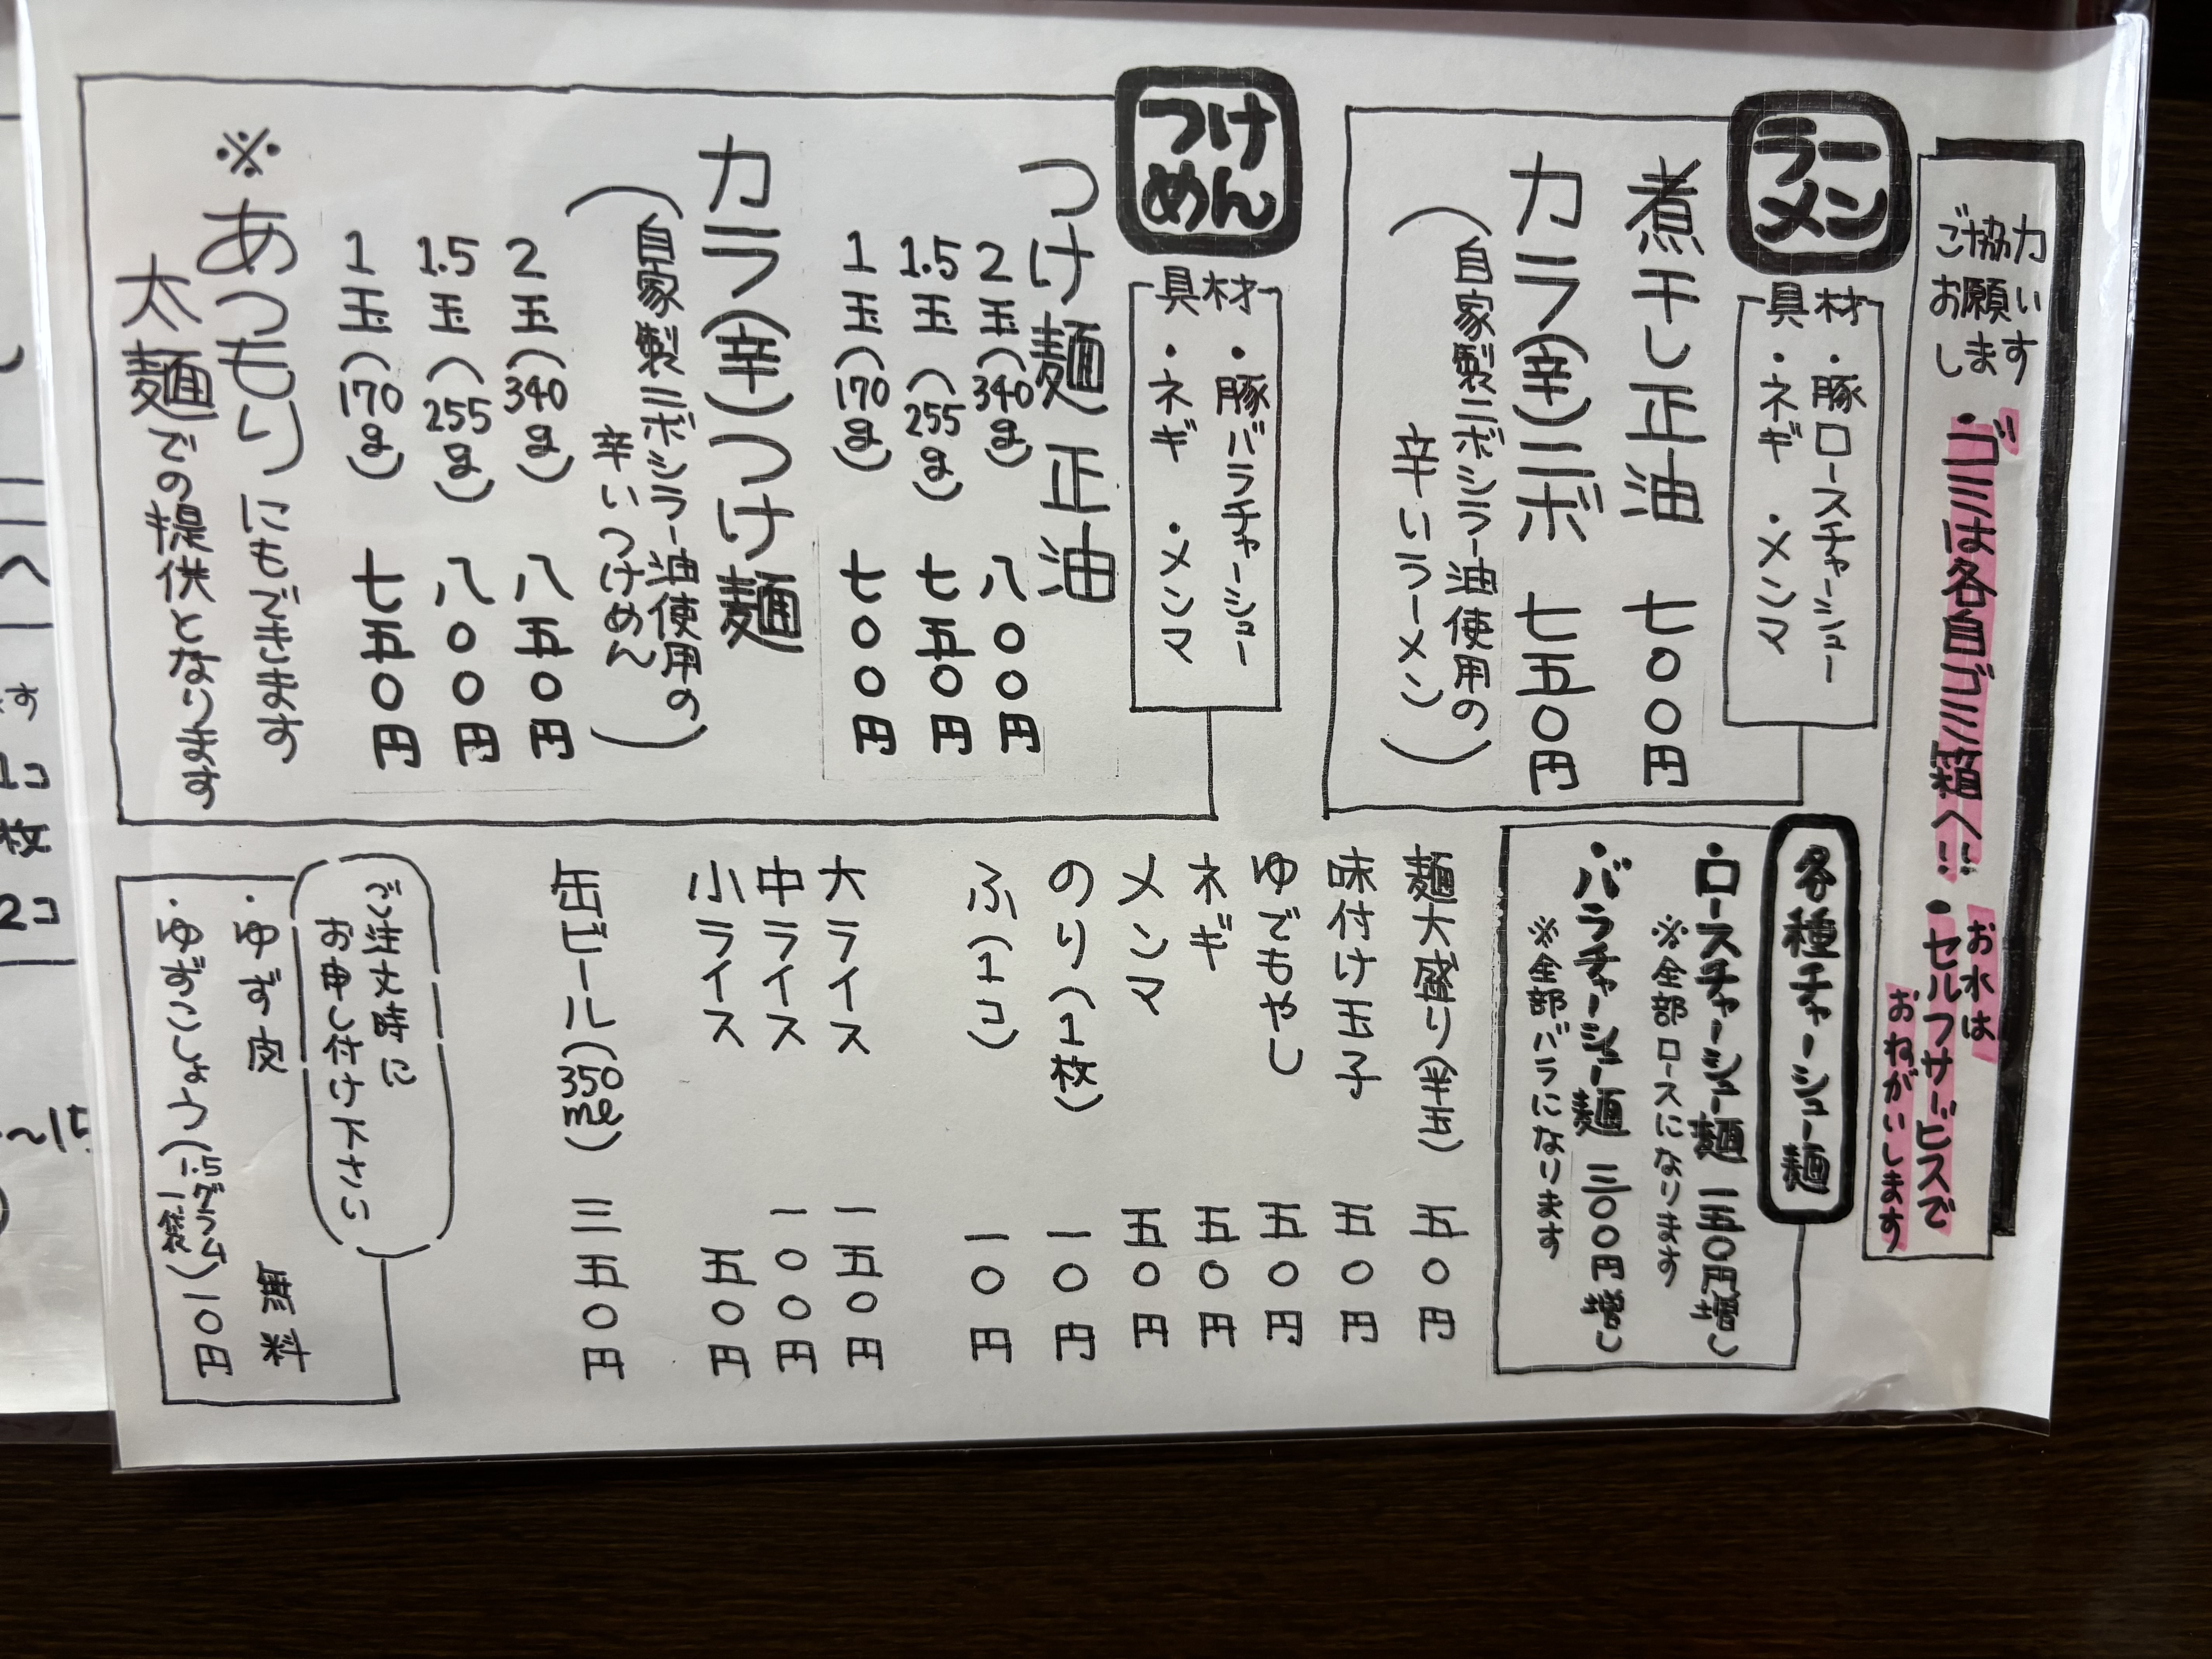 ご協力
お願い
します
・ゴミは各自ゴミ箱へ!!!
・お水は
セルフサービスで
おねがいします
ラー
メン
具材
・豚ロースチャーシュー
・ネギ ・メンマ
煮干し正油 七〇〇円
カラ(辛)ニボ 七五〇円
(自家製ニボシラー油使用の
辛いラーメン)
つけ
めん
具材
・豚バラチャーシュー
・ネギ ・メンマ
つけ麺 正油
2玉(340g) 八〇〇円
1.5玉(255g) 七五〇円
1玉(170g) 七〇〇円
カラ(辛)つけ麺
(自家製ニボシラー油使用の
辛いつけめん)
2玉(340g) 八五〇円
1.5玉(255g) 八〇〇円
1玉(170g) 七五〇円
※あつもりにもできます
太麺での提供となります
各種チャーシュー麺
・ロースチャーシュー麺 一五〇円増し
※全部ロースになります
・バラチャーシュー麺 三〇〇円増し
※全部バラになります
麺大盛り(半玉) 五〇円
味付け玉子 五〇円
ゆでもやし 五〇円
ネギ 五〇円
メンマ 五〇円
のり(1枚) 一〇円
ふ(1コ) 一〇円
大ライス 一五〇円
中ライス 一〇〇円
小ライス 五〇円
缶ビール(350ml) 三五〇円
ご注文時に
お申し付け下さい
・ゆず皮 無料
・ゆずこしょう(1.5グラム一袋)一〇円
す
1コ
枚
2コ